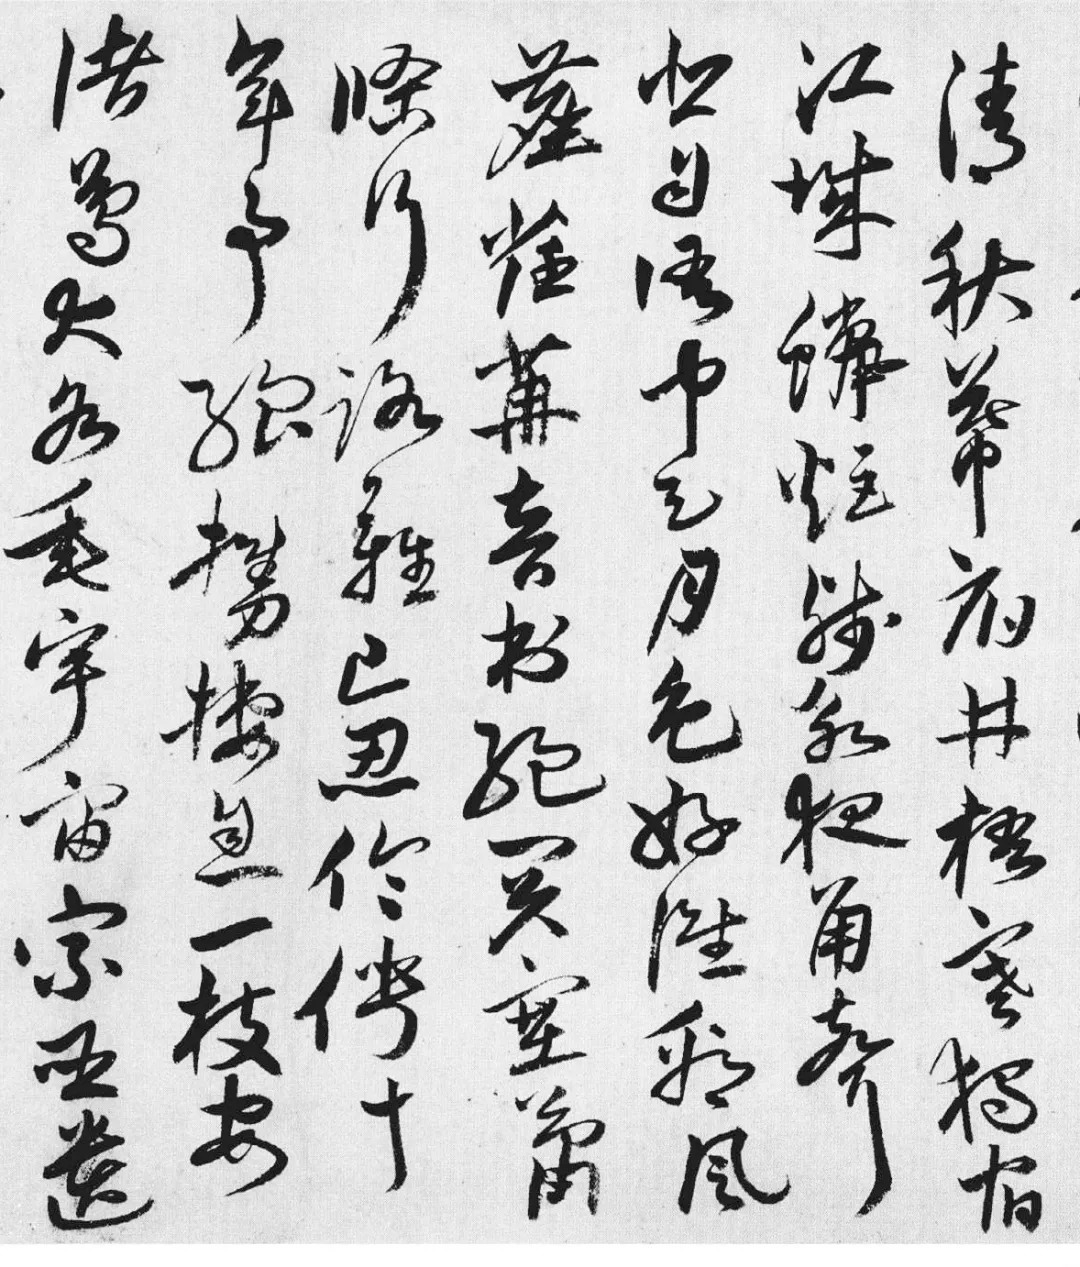 清秋幕府井梧寒獨宿
江城蠟炬殘永夜角聲
悲自語中天月色好誰看風
塵荏苒音書絕關塞蕭
條行路難已忍伶俜十
年事強移棲息一枝安
諸葛大名垂宇宙宗臣遺